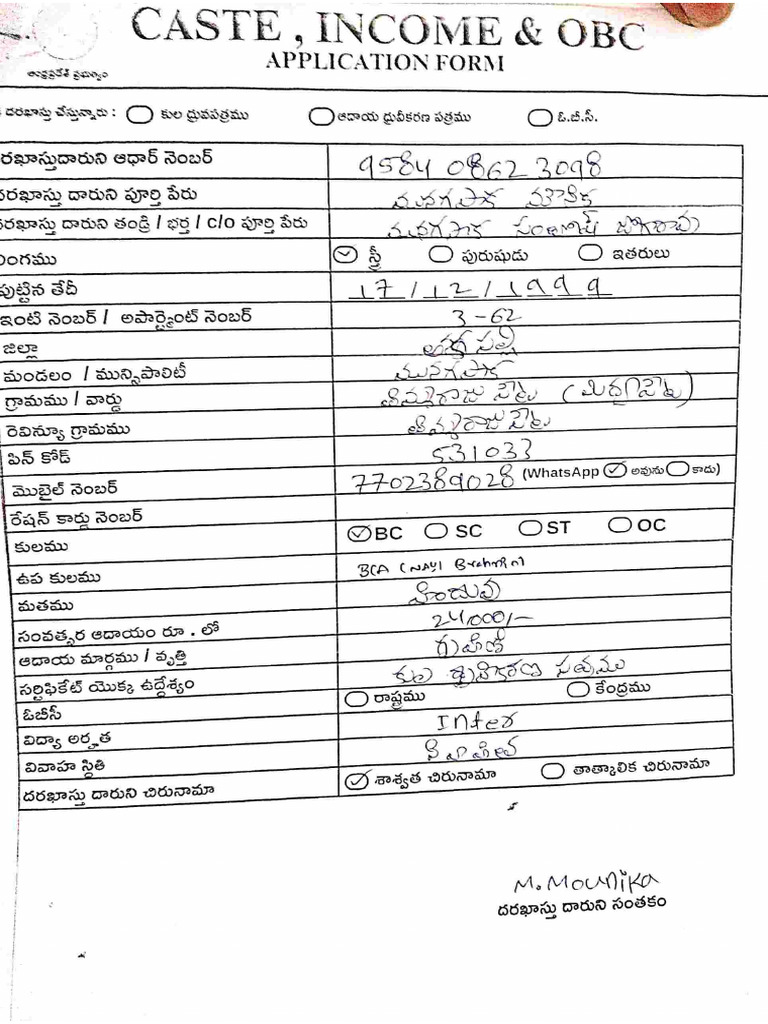 CASTE , INCOME & OBC
APPLICATION FORM
ఆంధ్రప్రదేశ్ ప్రభుత్వం
దరఖాస్తు చేస్తున్నారు : కుల ధ్రువపత్రము ఆదాయ ధ్రువీకరణ పత్రము ఓ.బీ.సీ.
దరఖాస్తుదారుని ఆధార్ నెంబర్ 9584 0862 3098
దరఖాస్తు దారుని పూర్తి పేరు మునగపాక మౌనిక
దరఖాస్తు దారుని తండ్రి / భర్త / c/o పూర్తి పేరు మునగపాక
లింగము స్త్రీ పురుషుడు ఇతరులు
పుట్టిన తేదీ 17/12/1999
ఇంటి నెంబర్ / అపార్ట్మెంట్ నెంబర్ 3-62
జిల్లా
మండలం / మున్సిపాలిటీ మునగపాక
గ్రామము / వార్డు
రెవిన్యూ గ్రామము
పిన్ కోడ్ 531033
మొబైల్ నెంబర్ 7702389028 (WhatsApp అవును కాదు)
రేషన్ కార్డు నెంబర్
కులము BC SC ST OC
ఉప కులము BCA (NAYI Brahmin)
మతము హిందువు
సంవత్సర ఆదాయం రూ . లో 24000/-
ఆదాయ మార్గము / వృత్తి గృహిణి
సర్టిఫికేట్ యొక్క ఉద్దేశ్యం కుల ధ్రువీకరణ పత్రము
ఓబీసీ రాష్ట్రము కేంద్రము
విద్యా అర్హత Inter
వివాహ స్థితి వివాహిత
దరఖాస్తు దారుని చిరునామా శాశ్వత చిరునామా తాత్కాలిక చిరునామా
M. Mounika
దరఖాస్తు దారుని సంతకం